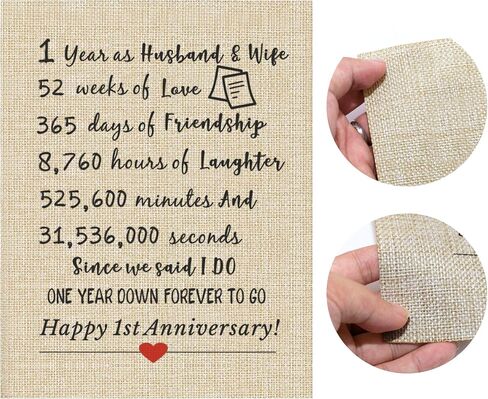 1 Year as Husband & Wife
52 weeks of Love
365 days of Friendship
8,760 hours of Laughter
525,600 minutes And
31,536,000 seconds
Since we said I DO
ONE YEAR DOWN FOREVER TO GO
Happy 1st Anniversary!